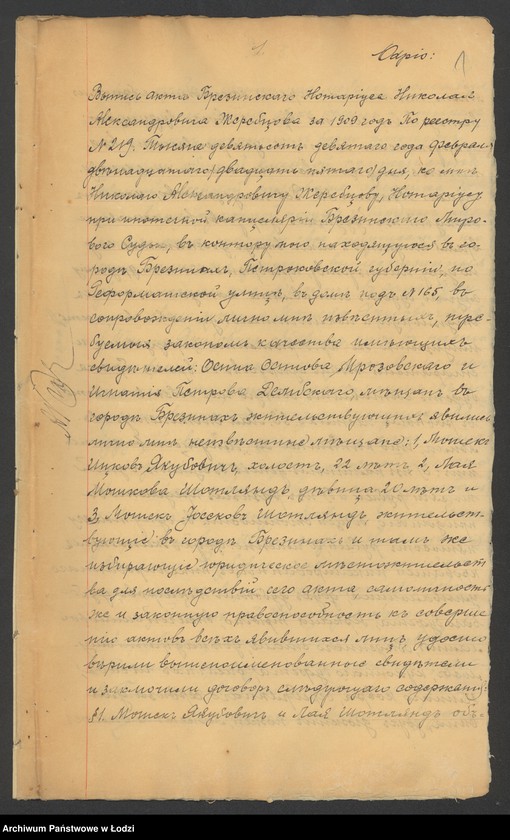 Копія:
1
Выпись акта Брезинскаго Нотаріуса Николая
Александровича Жеребцова за 1909 годъ По реестру
№ 219. Тысяча девятьсотъ девятаго года Февраля
двѣнадцатаго (двадцать пятаго) дня, ко мнѣ
Николаю Александровичу Жеребцову, Нотаріусу
при ипотечной канцеляріи Брезинскаго Миро-
вого Судьи, въ контору мою находящуюся въ го-
родѣ Брезинахъ, Петроковской губерніи, по
Реформатской улицѣ, въ домѣ подъ № 165, въ
сопровожденіи лично мнѣ извѣстныхъ, требу-
емыя закономъ качества имѣющихъ
свидѣтелей: Осипа Осипова Мрозовскаго и
Игнатія Петрова Дембскаго, мѣщанъ въ
городѣ Брезинахъ жительствующихъ явились
лично мнѣ неизвѣстные мѣщане: 1, Мошекъ
Ицковъ Якубовичъ, холостъ, 22 лѣтъ 2, Лая
Мошкова Шотляндъ, дѣвица 20 лѣтъ и
3, Мошекъ Іосековъ Шотляндъ, жительст-
вующіе въ городѣ Брезинахъ и тамъ же
избирающіе юридическое мѣстожительст
ва для послѣдствій сего акта, самоличность
же и законную правоспособность къ соверше
нію актовъ всѣхъ явившихся лицъ удосто
вѣрили вышепоименованные свидѣтели
и заключили договоръ слѣдующаго содержанія:
§1. Мошекъ Якубовичъ и Лая Шотляндъ объ-
Archiwum Państwowe w Łodzi